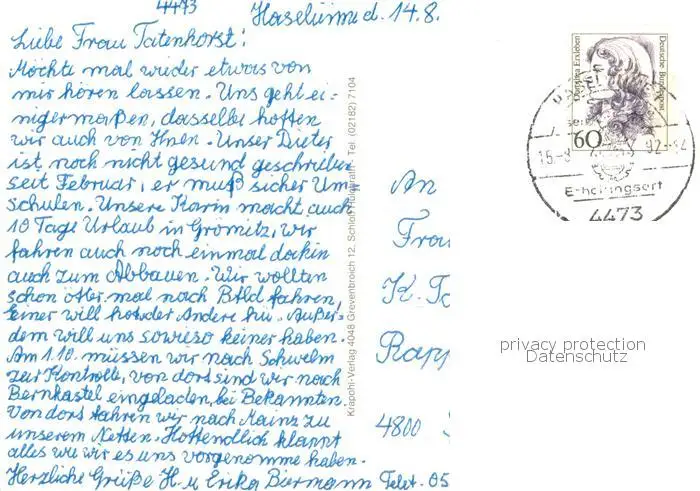 4473
Haselünne d. 14.8.
Liebe Frau Tatenhorst!
Möchte mal wieder etwas von
mir hören lassen. Uns geht ei-
nigermaßen, dasselbe hoffen
wir auch von Ihnen. Unser Dieter
ist noch nicht gesund geschrieben
seit Februar, er muß sicher Um-
schulen. Unsere Karin macht auch
10 Tage Urlaub in Grömitz, wir
fahren auch noch einmal dorhin
auch zum Abbauen. Wir wollten
schon öfter mal nach Bfld fahren,
Einer will hot der Andere hü. Außer-
dem will uns sowieso keiner haben.
Am 1.10. müssen wir nach Schwelm
zur Kontrolle, von dort sind wir nach
Bernkastel eingeladen, bei Bekannten.
Von dort fahren wir nach Mainz zu
unserem Neffen. Hoffendlich klappt
alles wie wir es uns vorgenomme haben.
Herzliche Grüße H. u Erika Biermann Telef. 05
Krapohl-Verlag 4048 Grevenbroich 12, Schloß Hülchrath - Tel. (02182) 7104
An
Frau
K. Ta
Rapp
4800
Dorothea Erxleben
Deutsche Bundespost
60
15.-8
92.-12
Erholungsort
4473
privacy protection
Datenschutz